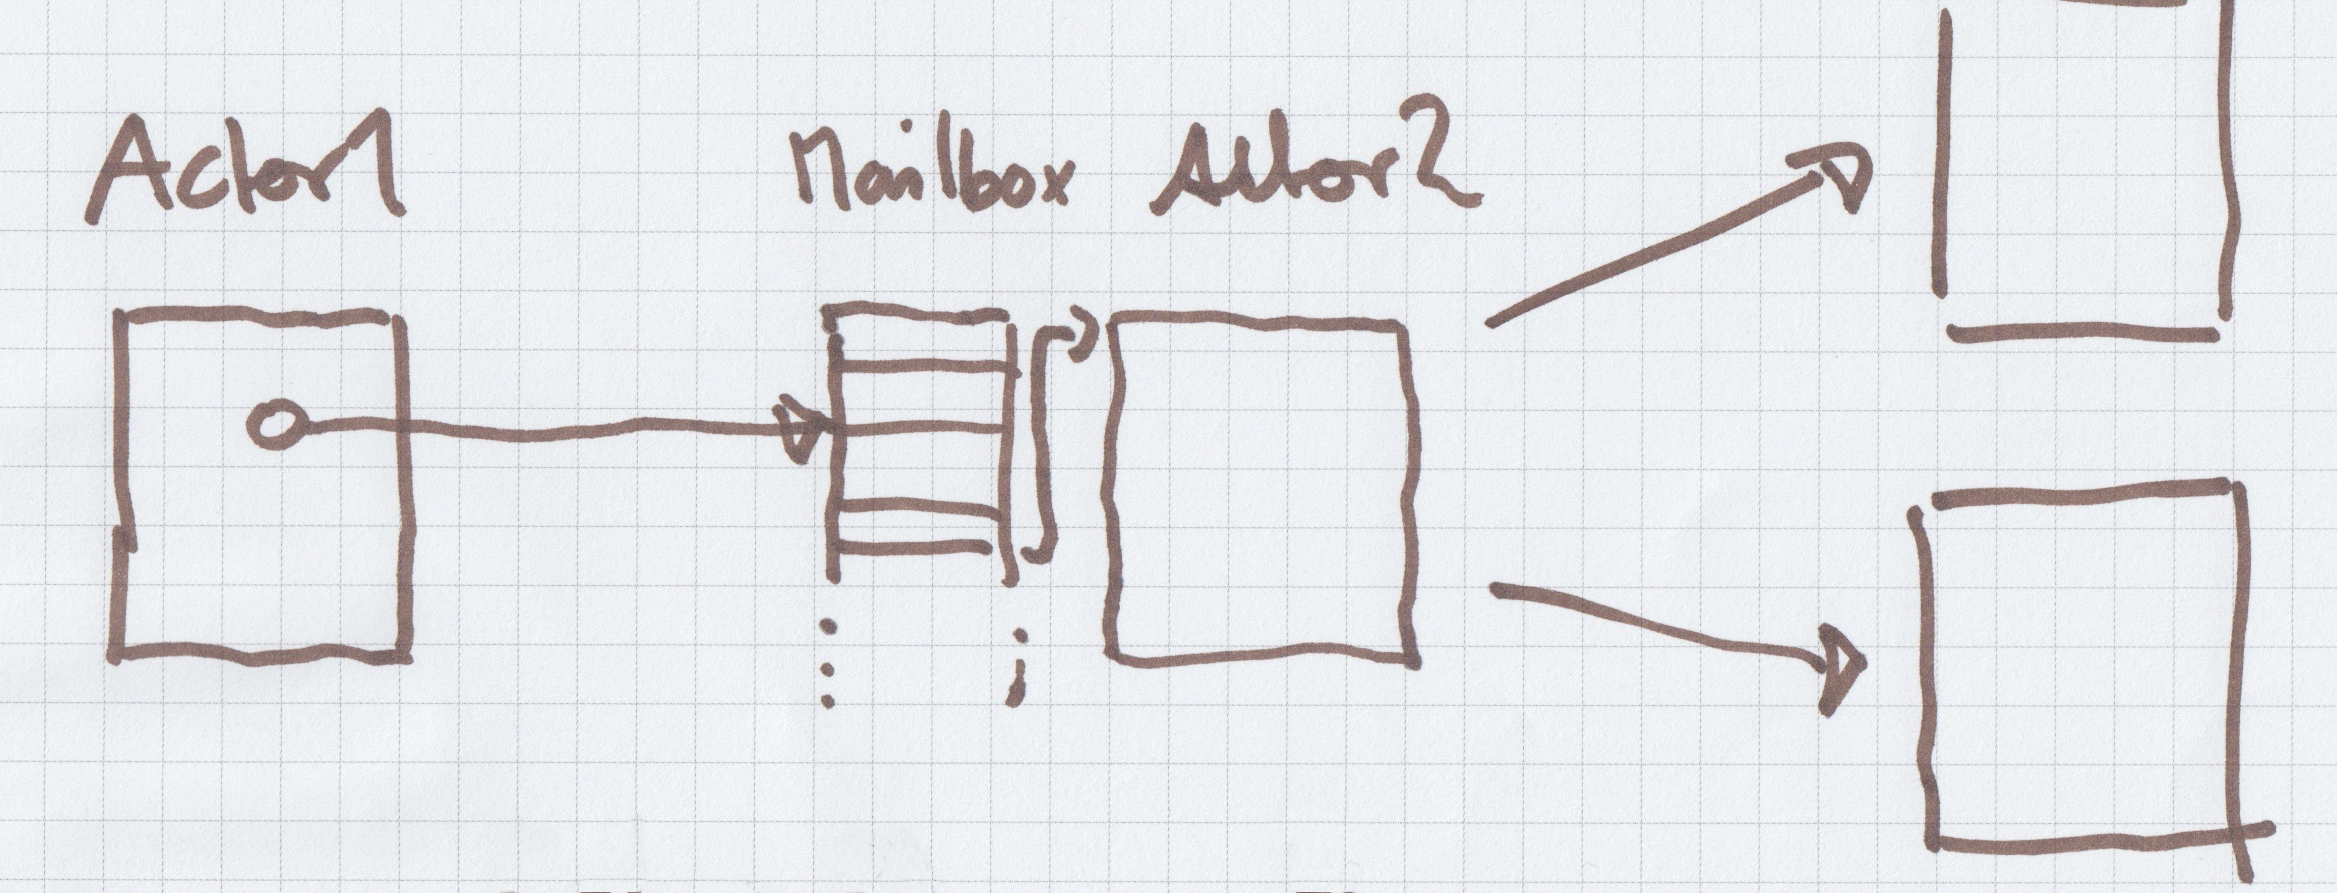 Actor1 Mailbox Actor2